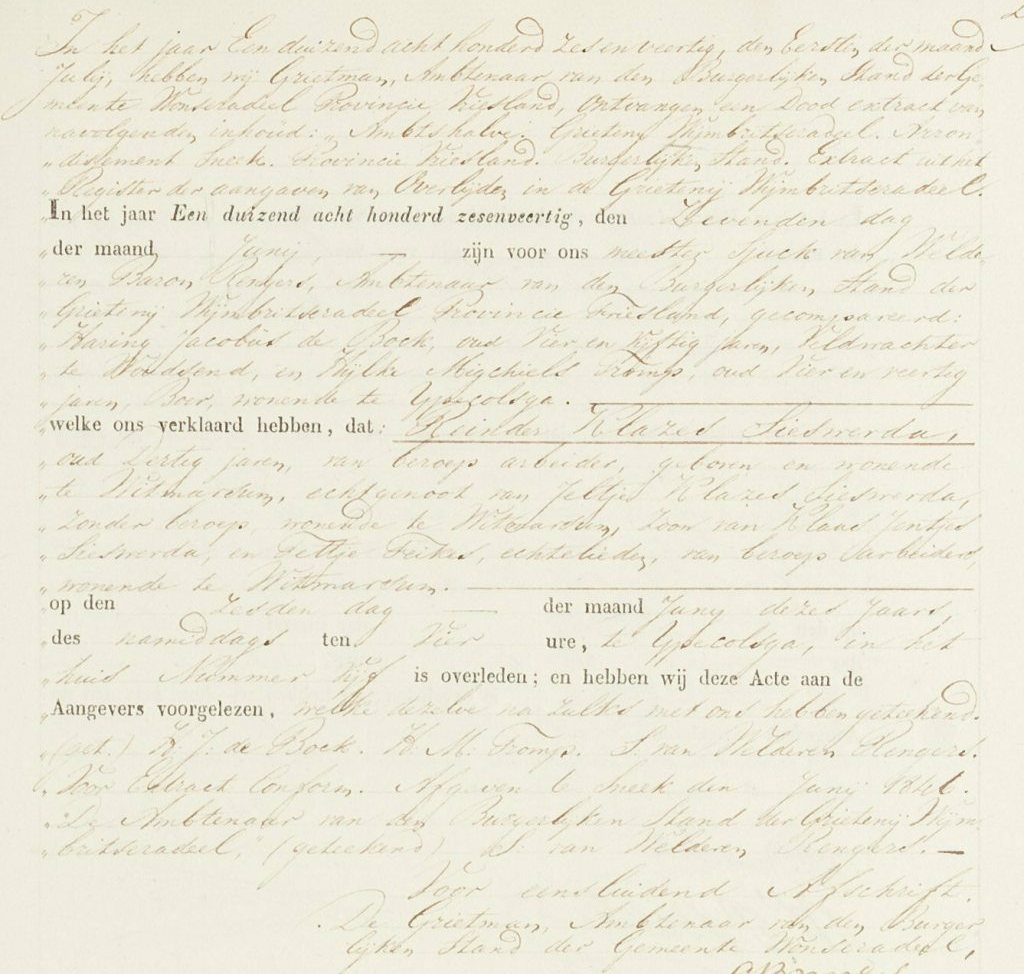 In het jaar Een duizend acht honderd zes en veertig, den Eersten der maand
Julij, hebben wij Grietman, Ambtenaar van den Burgerlijken Stand der Ge-
meente Wonseradeel Provincie Vriesland, ontvangen een Dood extract van
navolgenden inhoud: „Ambtshalve. Grietenij Wijmbritseradeel. Arron-
„dissement Sneek. Provincie Vriesland. Burgerlijken Stand. Extract uit het
„Register der aangaven van Overlijden in de Grietenij Wijmbritseradeel.
„In het jaar Een duizend acht honderd zesenveertig, den Zevenden dag
„der maand Junij, — zijn voor ons meester Sjuck van Welde-
„ren Baron Rengers, Ambtenaar van den Burgerlijken Stand der
„Grietenij Wijmbritseradeel Provincie Friesland, gecompareerd:
„Haring Jacobus de Bock, oud Vier en Vijftig jaren, Veldwachter
„te Woudsend, en Hijlke Migchiels Tromp, oud Vier en veertig
„jaren, Boer, wonende te Ypecolsga. —
„welke ons verklaard hebben, dat: Reinder Klazes Sieswerda,
„oud Dertig jaren, van beroep arbeider, geboren en wonende
„te Witmarsum, echtgenoot van Jeltje Klazes Sieswerda,
„zonder beroep, wonende te Witmarsum, Zoon van Klaas Jentjes
„Sieswerda, en Tettje Feikes, echtelieden, van beroep arbeiders,
„wonende te Witmarsum. —
„op den Zesden dag — der maand Junij dezes Jaars,
„des namiddags ten Vier ure, te Ypecolsga, in het
„huis Nummer Vijf is overleden; en hebben wij deze Acte aan de
„Aangevers voorgelezen, welke dezelve na zulks met ons hebben geteekend.
„(get.) H: J: de Bock. H. M: Tromp. S. van Welderen Rengers.
„Voor Extract Conform. Afgeven te Sneek den Junij 1846.
„De Ambtenaar van den Burgerlijken Stand der Grietenij Wijm-
„britseradeel," (geteekend) S: van Welderen Rengers. —
Voor eensluidend Afschrift.
De Grietman, Ambtenaar van den Burger
lijken Stand der Gemeente Wonseradeel,